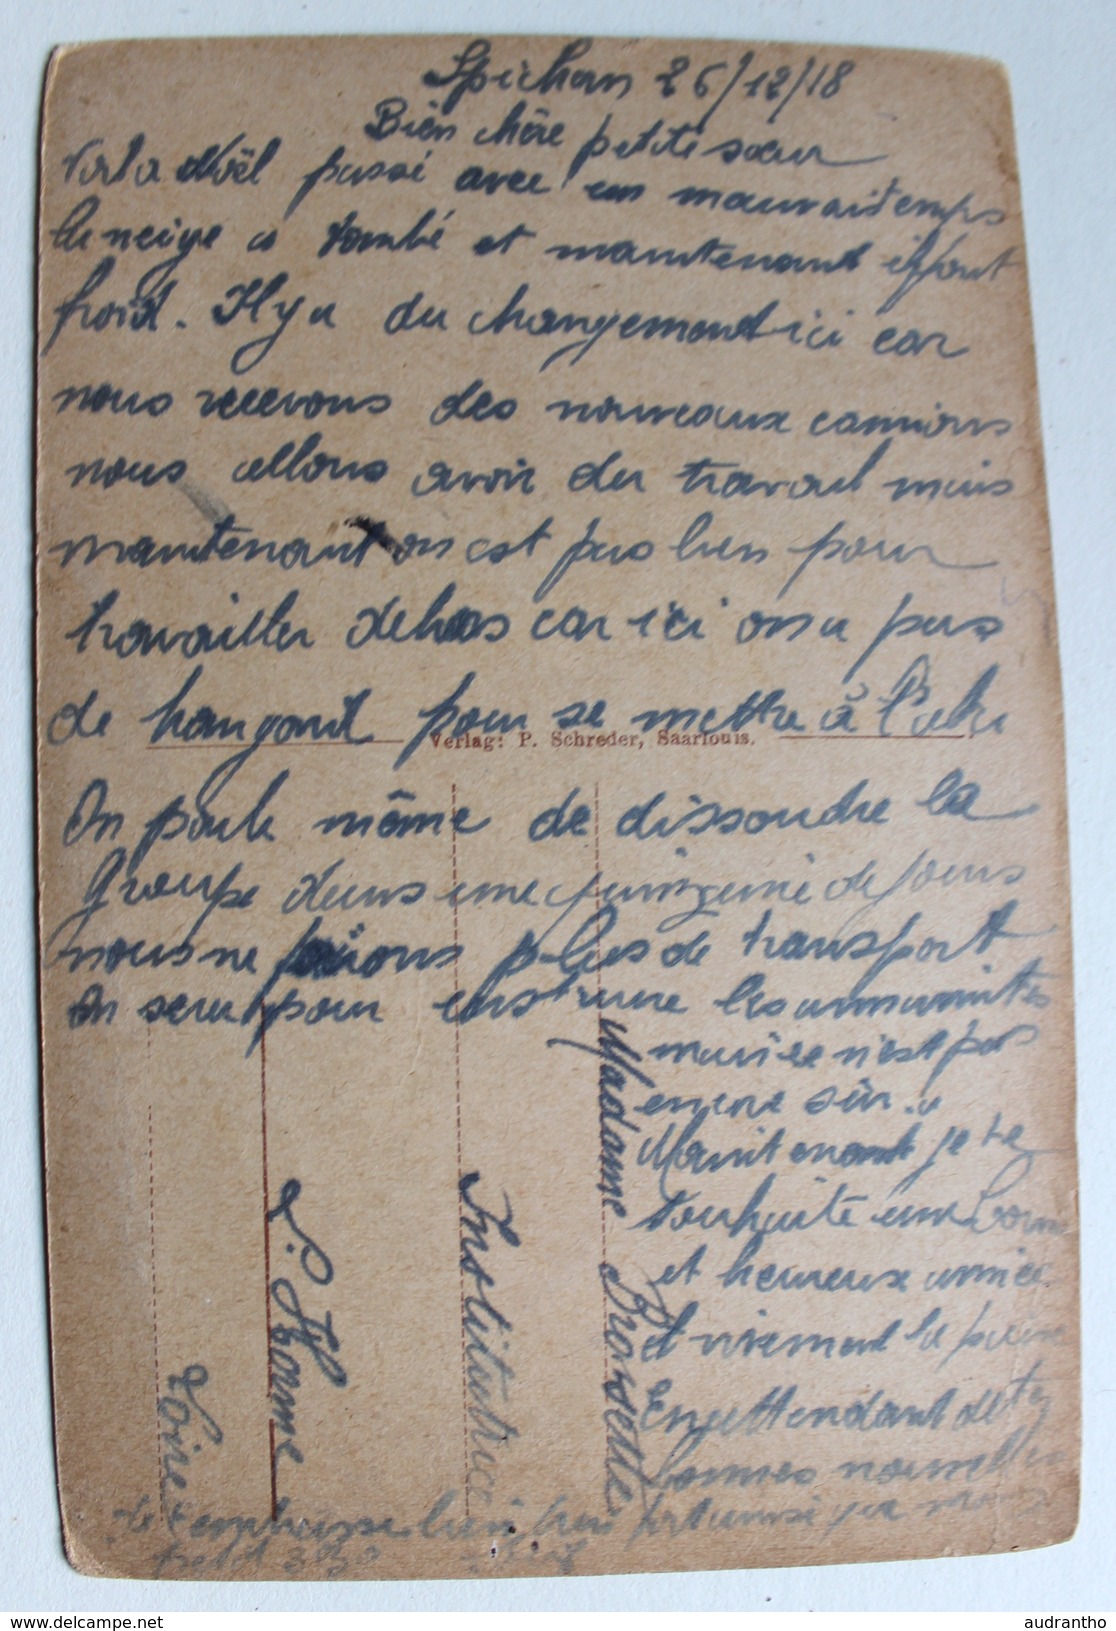 Spicheren 26/12/18
Bien chère petite sœur
Voila Noël passé avec un mauvais temps
la neige a tombé et maintenant il fait
froid. Il y a du changement ici car
nous recevons des nouveaux camions
nous allons avoir du travail mais
maintenant on est pas bien pour
travailler dehors car ici on a pas
de hangard pour se mettre à l'abri
Verlag: P. Schreder, Saarlouis.
On parle même de dissoudre la
Groupe dans une quinzaine de jours
nous ne faisons plus de transport
On sera pour construire les
mais ce n'est pas
encore sûr.
Maintenant je te
souhaite une bonne
et heureuse année
et vivement la paix
En attendant de tes
bonnes nouvelles
Je t'embrasse bien fort
Madame Bronselle
Institutrice
St. Thome
Loire
delcampe.net
audrantho